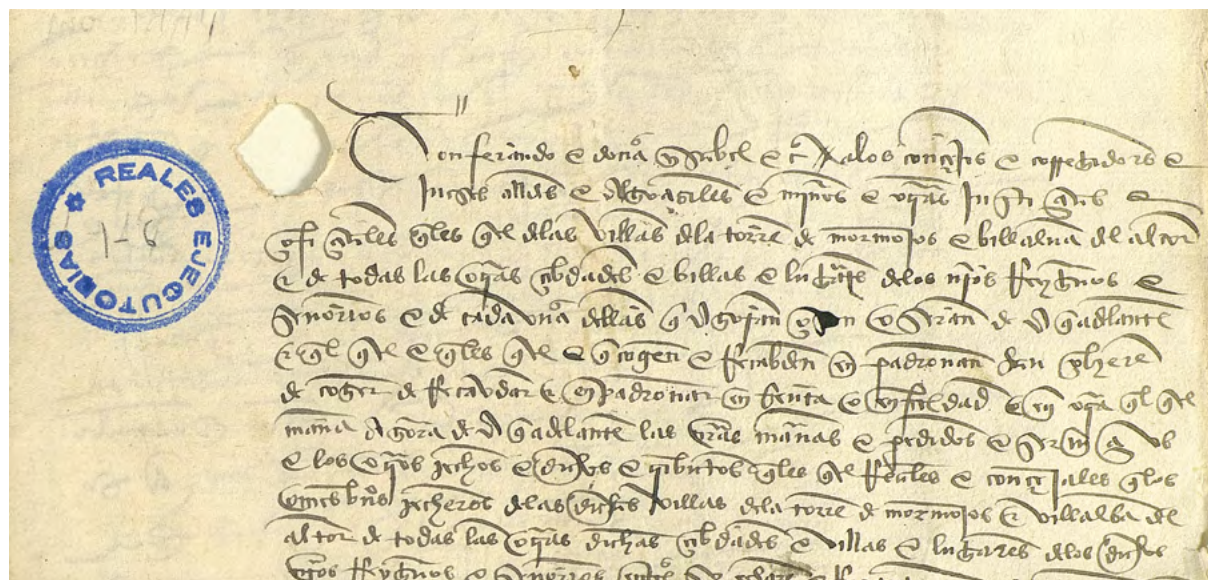 REALES EJECUTORIAS
8-1
Don ferãndo e doña ysabel e cª A los conçejos e corregidors e
Jueses allds e Alguasiles e mjnos e otras Justiçias e
ofiçiales qles qr delas villas dela torre de mormojos e billalua del alcor
e de todas las otras çibdades e billas e lugares delos nros Reygnos e
Señorios e de cada vna dellas q Agora son o seran de A q adelante
e cogen e Recabdan en padronan
de coger de Recavdar e enpadronar en Renta o en fieldad o en otra ql qr
manã Agora de A q adelante las nras mãnas e pedidos e seruiçios
e los otros pechos e dichos e tributos qles qr Reales e conçejales q los
omes bnos pecheros delas dichas villas dela torre de mormojos e villalba del
alcor de todas las otras dichas çibdades e villas e lugares delos dichos
nros Reygnos e Señorios